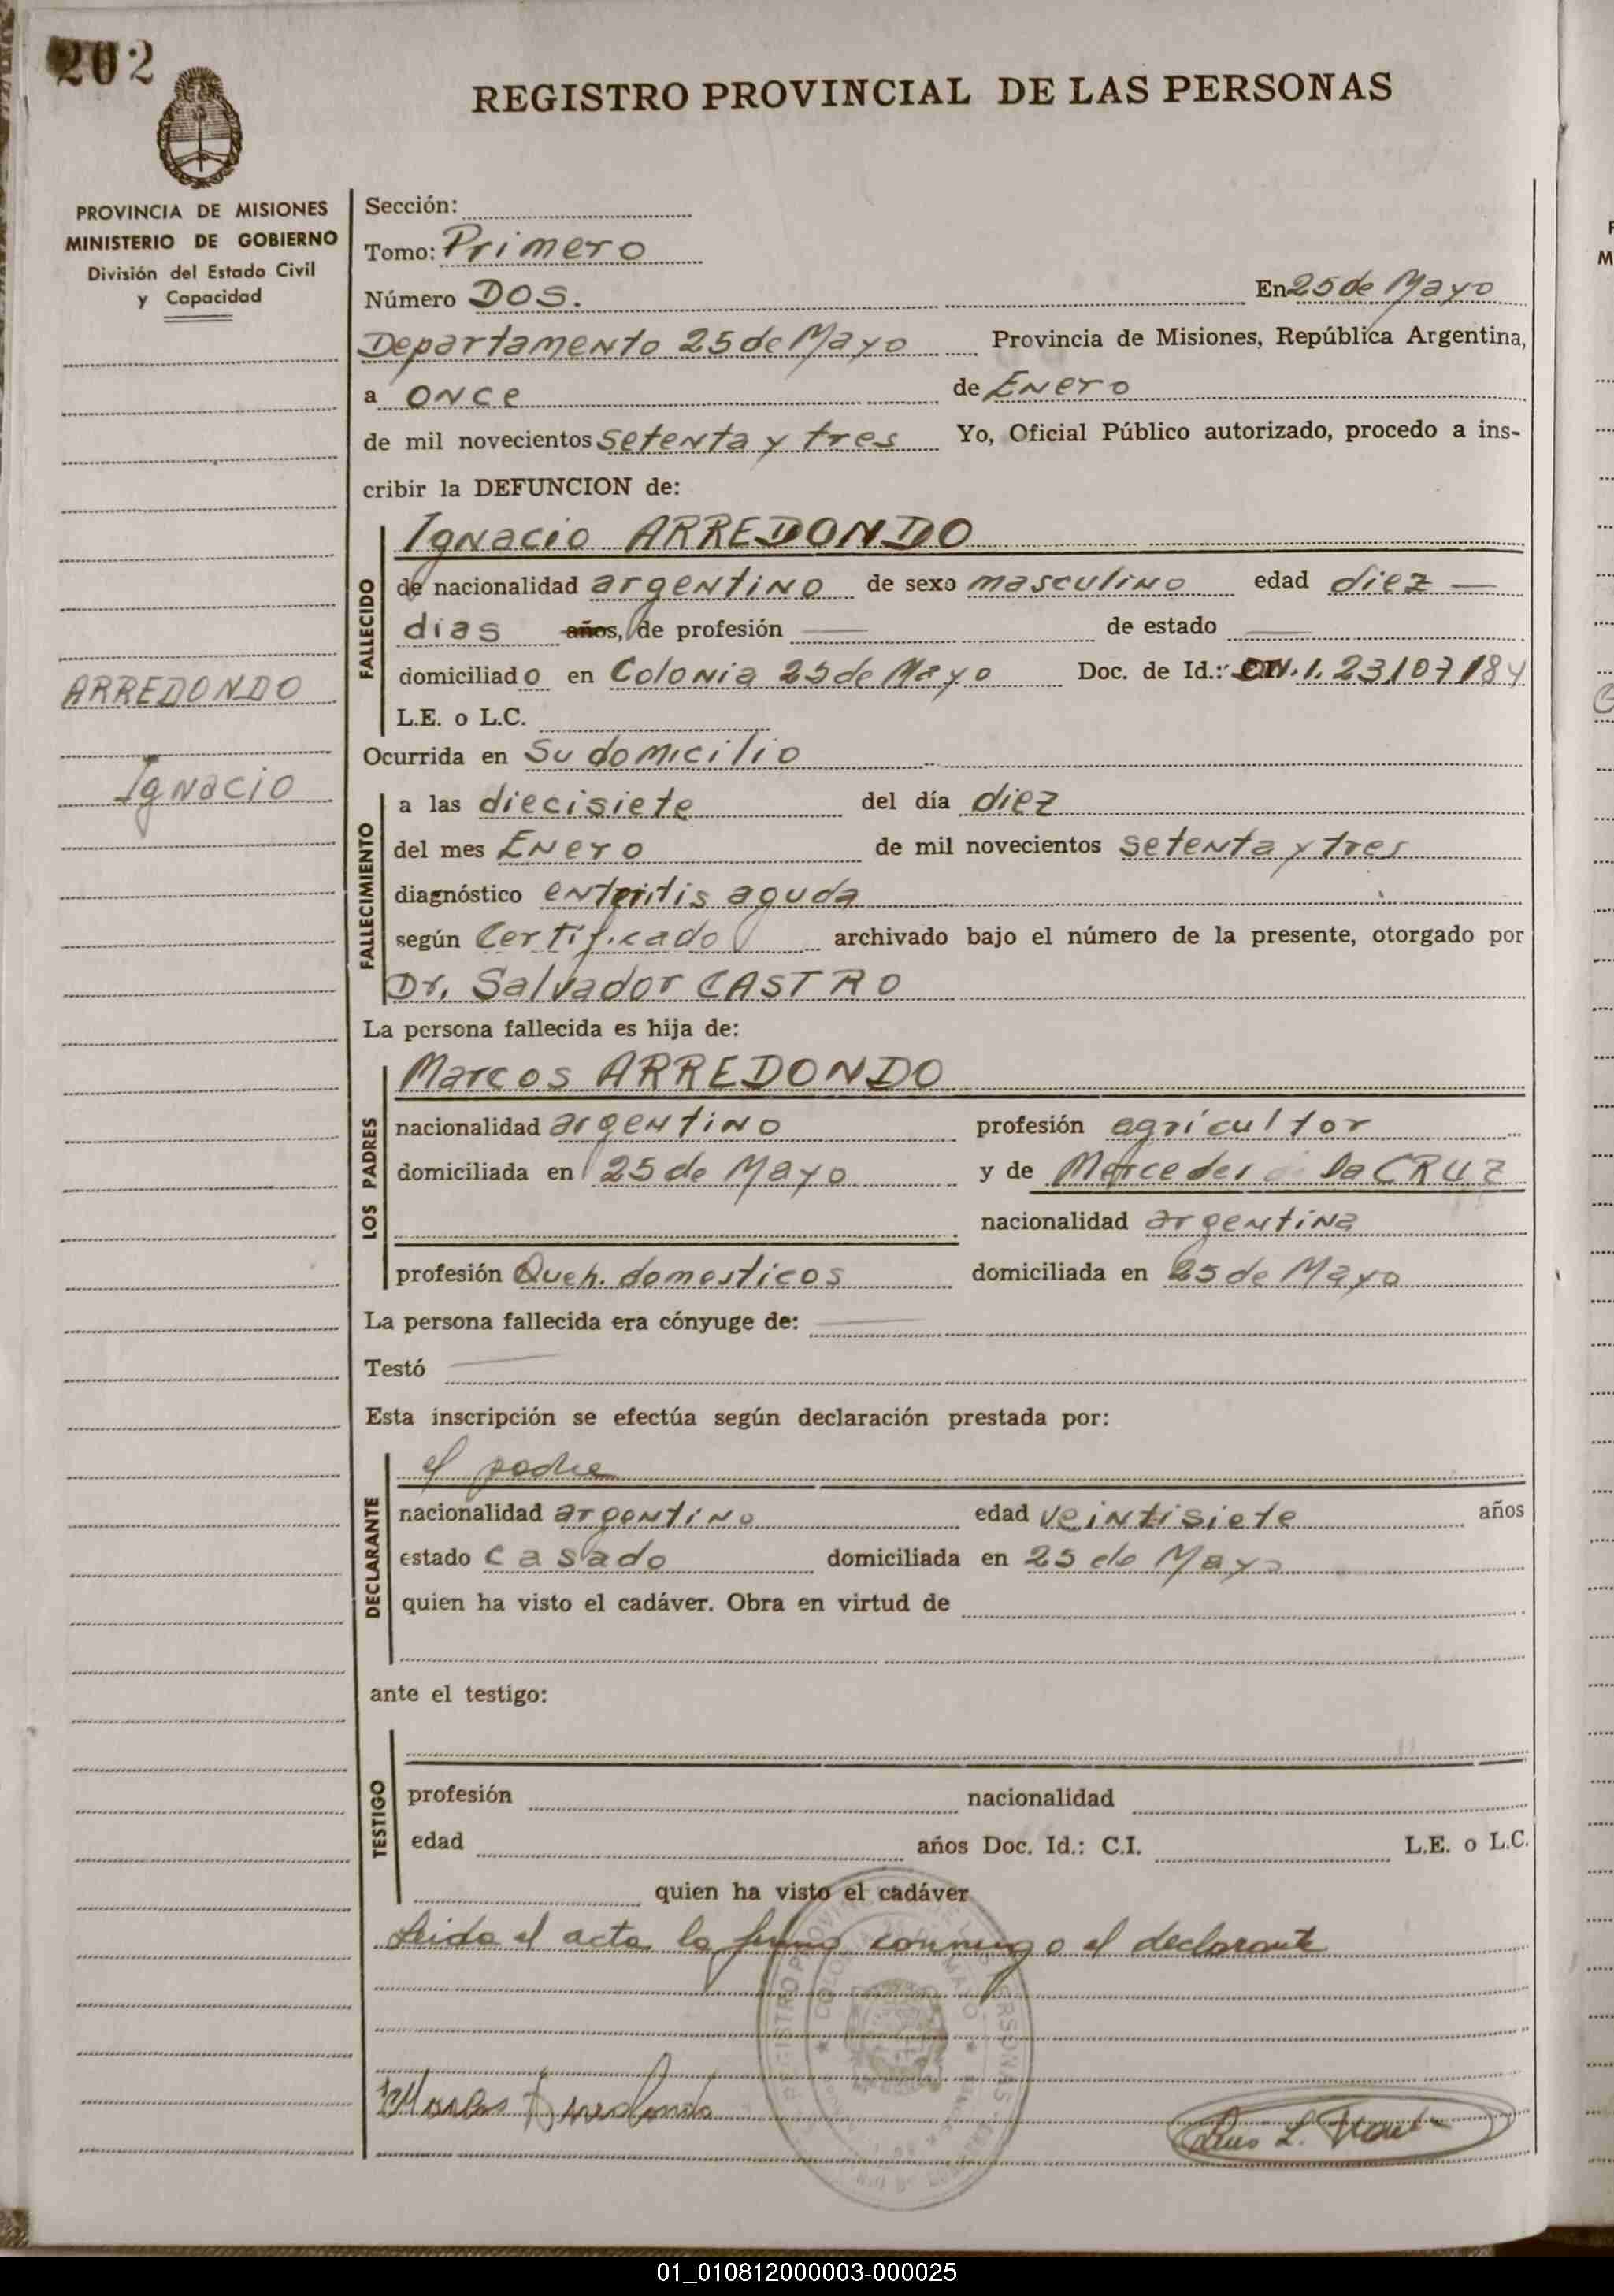 202
REGISTRO PROVINCIAL DE LAS PERSONAS
PROVINCIA DE MISIONES
MINISTERIO DE GOBIERNO
División del Estado Civil
y Capacidad
ARREDONDO
Ignacio
Sección:
Tomo: Primero
Número DOS. En 25 de Mayo
Departamento 25 de Mayo Provincia de Misiones, República Argentina,
a once de Enero
de mil novecientos setenta y tres Yo, Oficial Público autorizado, procedo a ins-
cribir la DEFUNCION de:
FALLECIDO
Ignacio ARREDONDO
de nacionalidad argentino de sexo masculino edad diez —
dias años, de profesión — de estado —
domiciliado en Colonia 25 de Mayo Doc. de Id.: 23.107.184
L.E. o L.C.
Ocurrida en Su domicilio
FALLECIMIENTO
a las diecisiete del día diez
del mes Enero de mil novecientos setenta y tres
diagnóstico enteritis aguda
según Certificado archivado bajo el número de la presente, otorgado por
Dr. Salvador CASTRO
La persona fallecida es hija de:
LOS PADRES
Marcos ARREDONDO
nacionalidad argentino profesión agricultor
domiciliada en 25 de Mayo y de Mercedes de la CRUZ
nacionalidad argentina
profesión Queh. domesticos domiciliada en 25 de Mayo
La persona fallecida era cónyuge de: —
Testó —
Esta inscripción se efectúa según declaración prestada por:
DECLARANTE
el padre
nacionalidad argentino edad veintisiete años
estado casado domiciliada en 25 de Mayo
quien ha visto el cadáver. Obra en virtud de
ante el testigo:
TESTIGO
profesión nacionalidad
edad años Doc. Id.: C.I. L.E. o L.C.
quien ha visto el cadáver
Leida el acta la firma conmigo el declarante
Marcos Arredondo
Luis L.
01_010812000003-000025